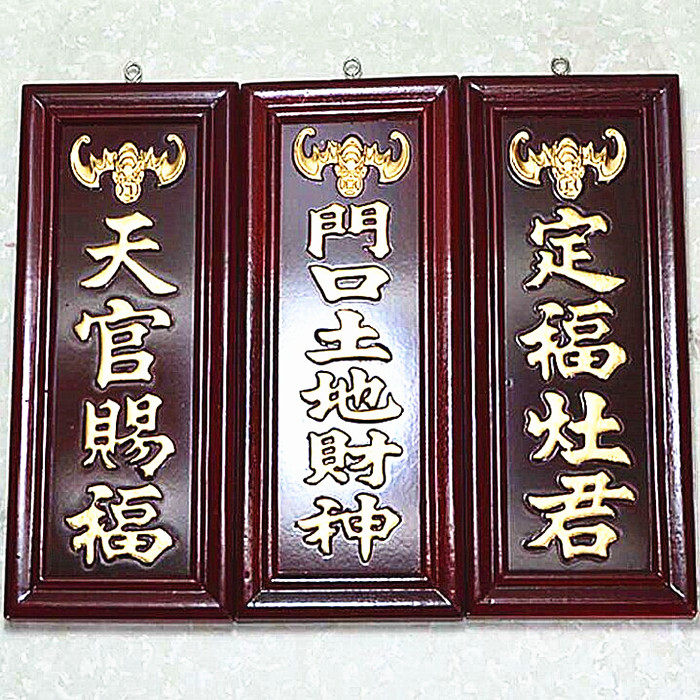 天官賜福
門口土地財神
定福灶君